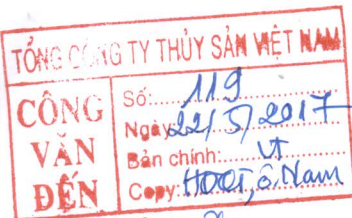 TỔNG CÔNG TY THỦY SẢN VIỆT NAM
CÔNG VĂN ĐẾN
Số: 119
Ngày 22/5/2017
Bản chính: VT
Copy: HĐQT, ô. Nam